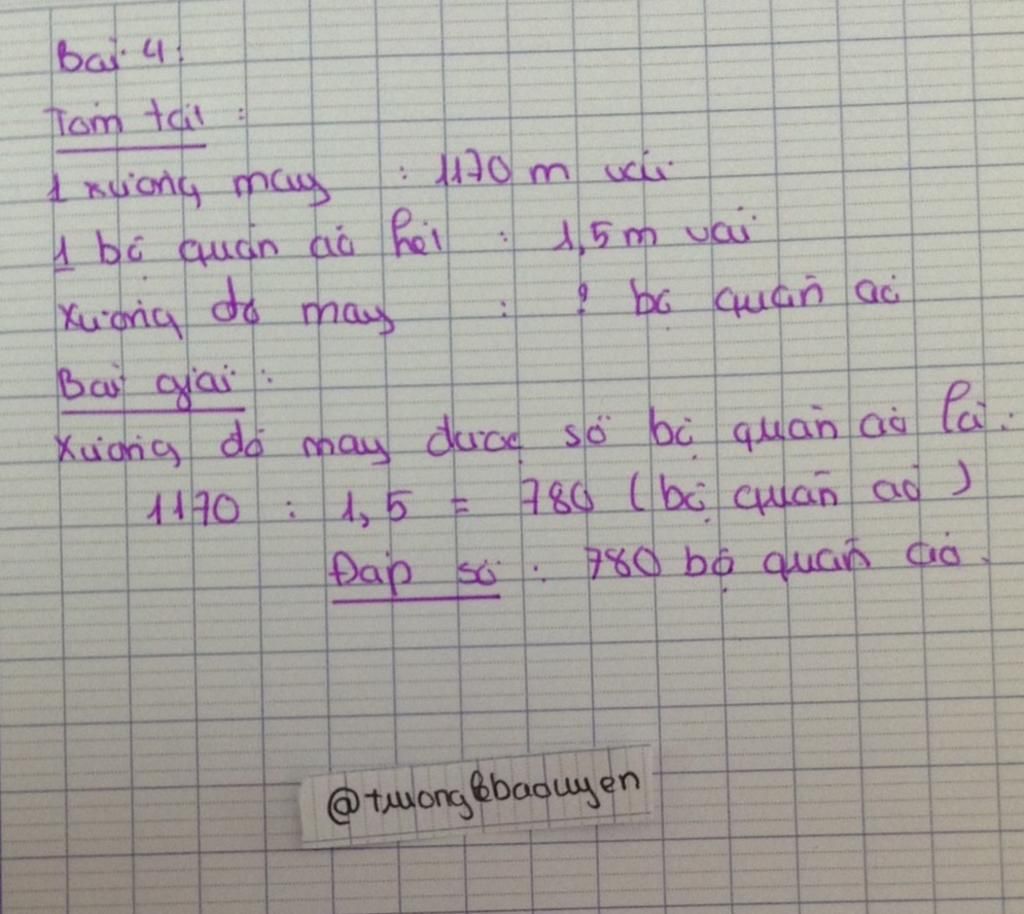 Bài 4:
Tóm tắt :
1 xưởng may : 1170 m vải
1 bộ quần áo hết : 1,5 m vải
Xưởng đó may : ? bộ quần áo
Bài giải :
Xưởng đó may được số bộ quần áo là :
1170 : 1,5 = 780 ( bộ quần áo )
Đáp số : 780 bộ quần áo.
@truong&baouyen